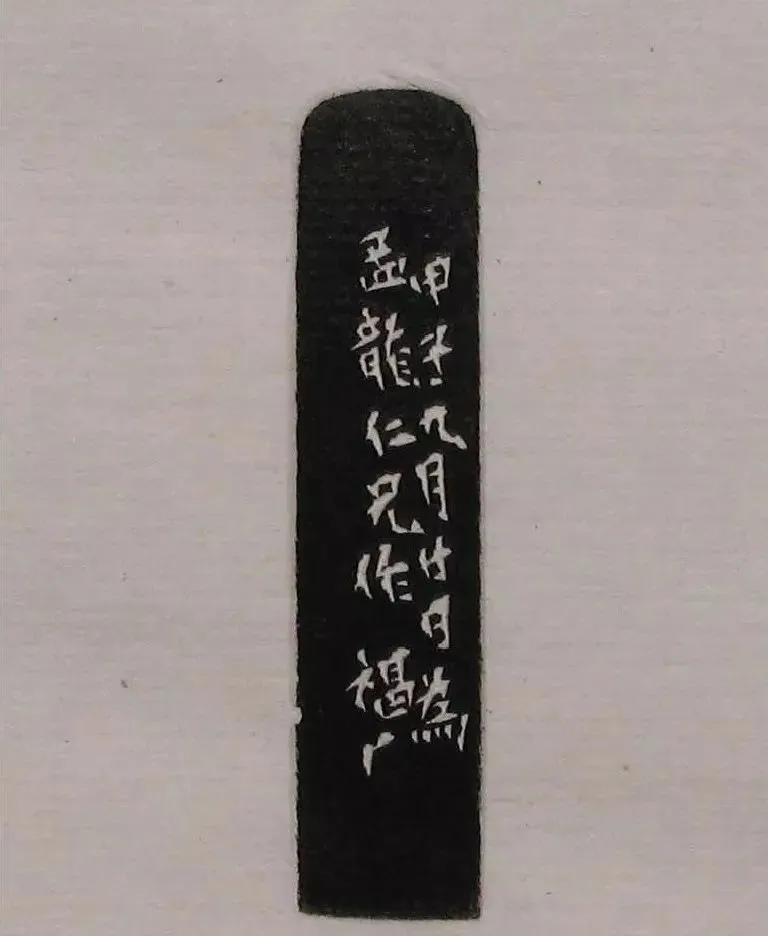 甲九月廿日為
孟龍仁兄作 福厂